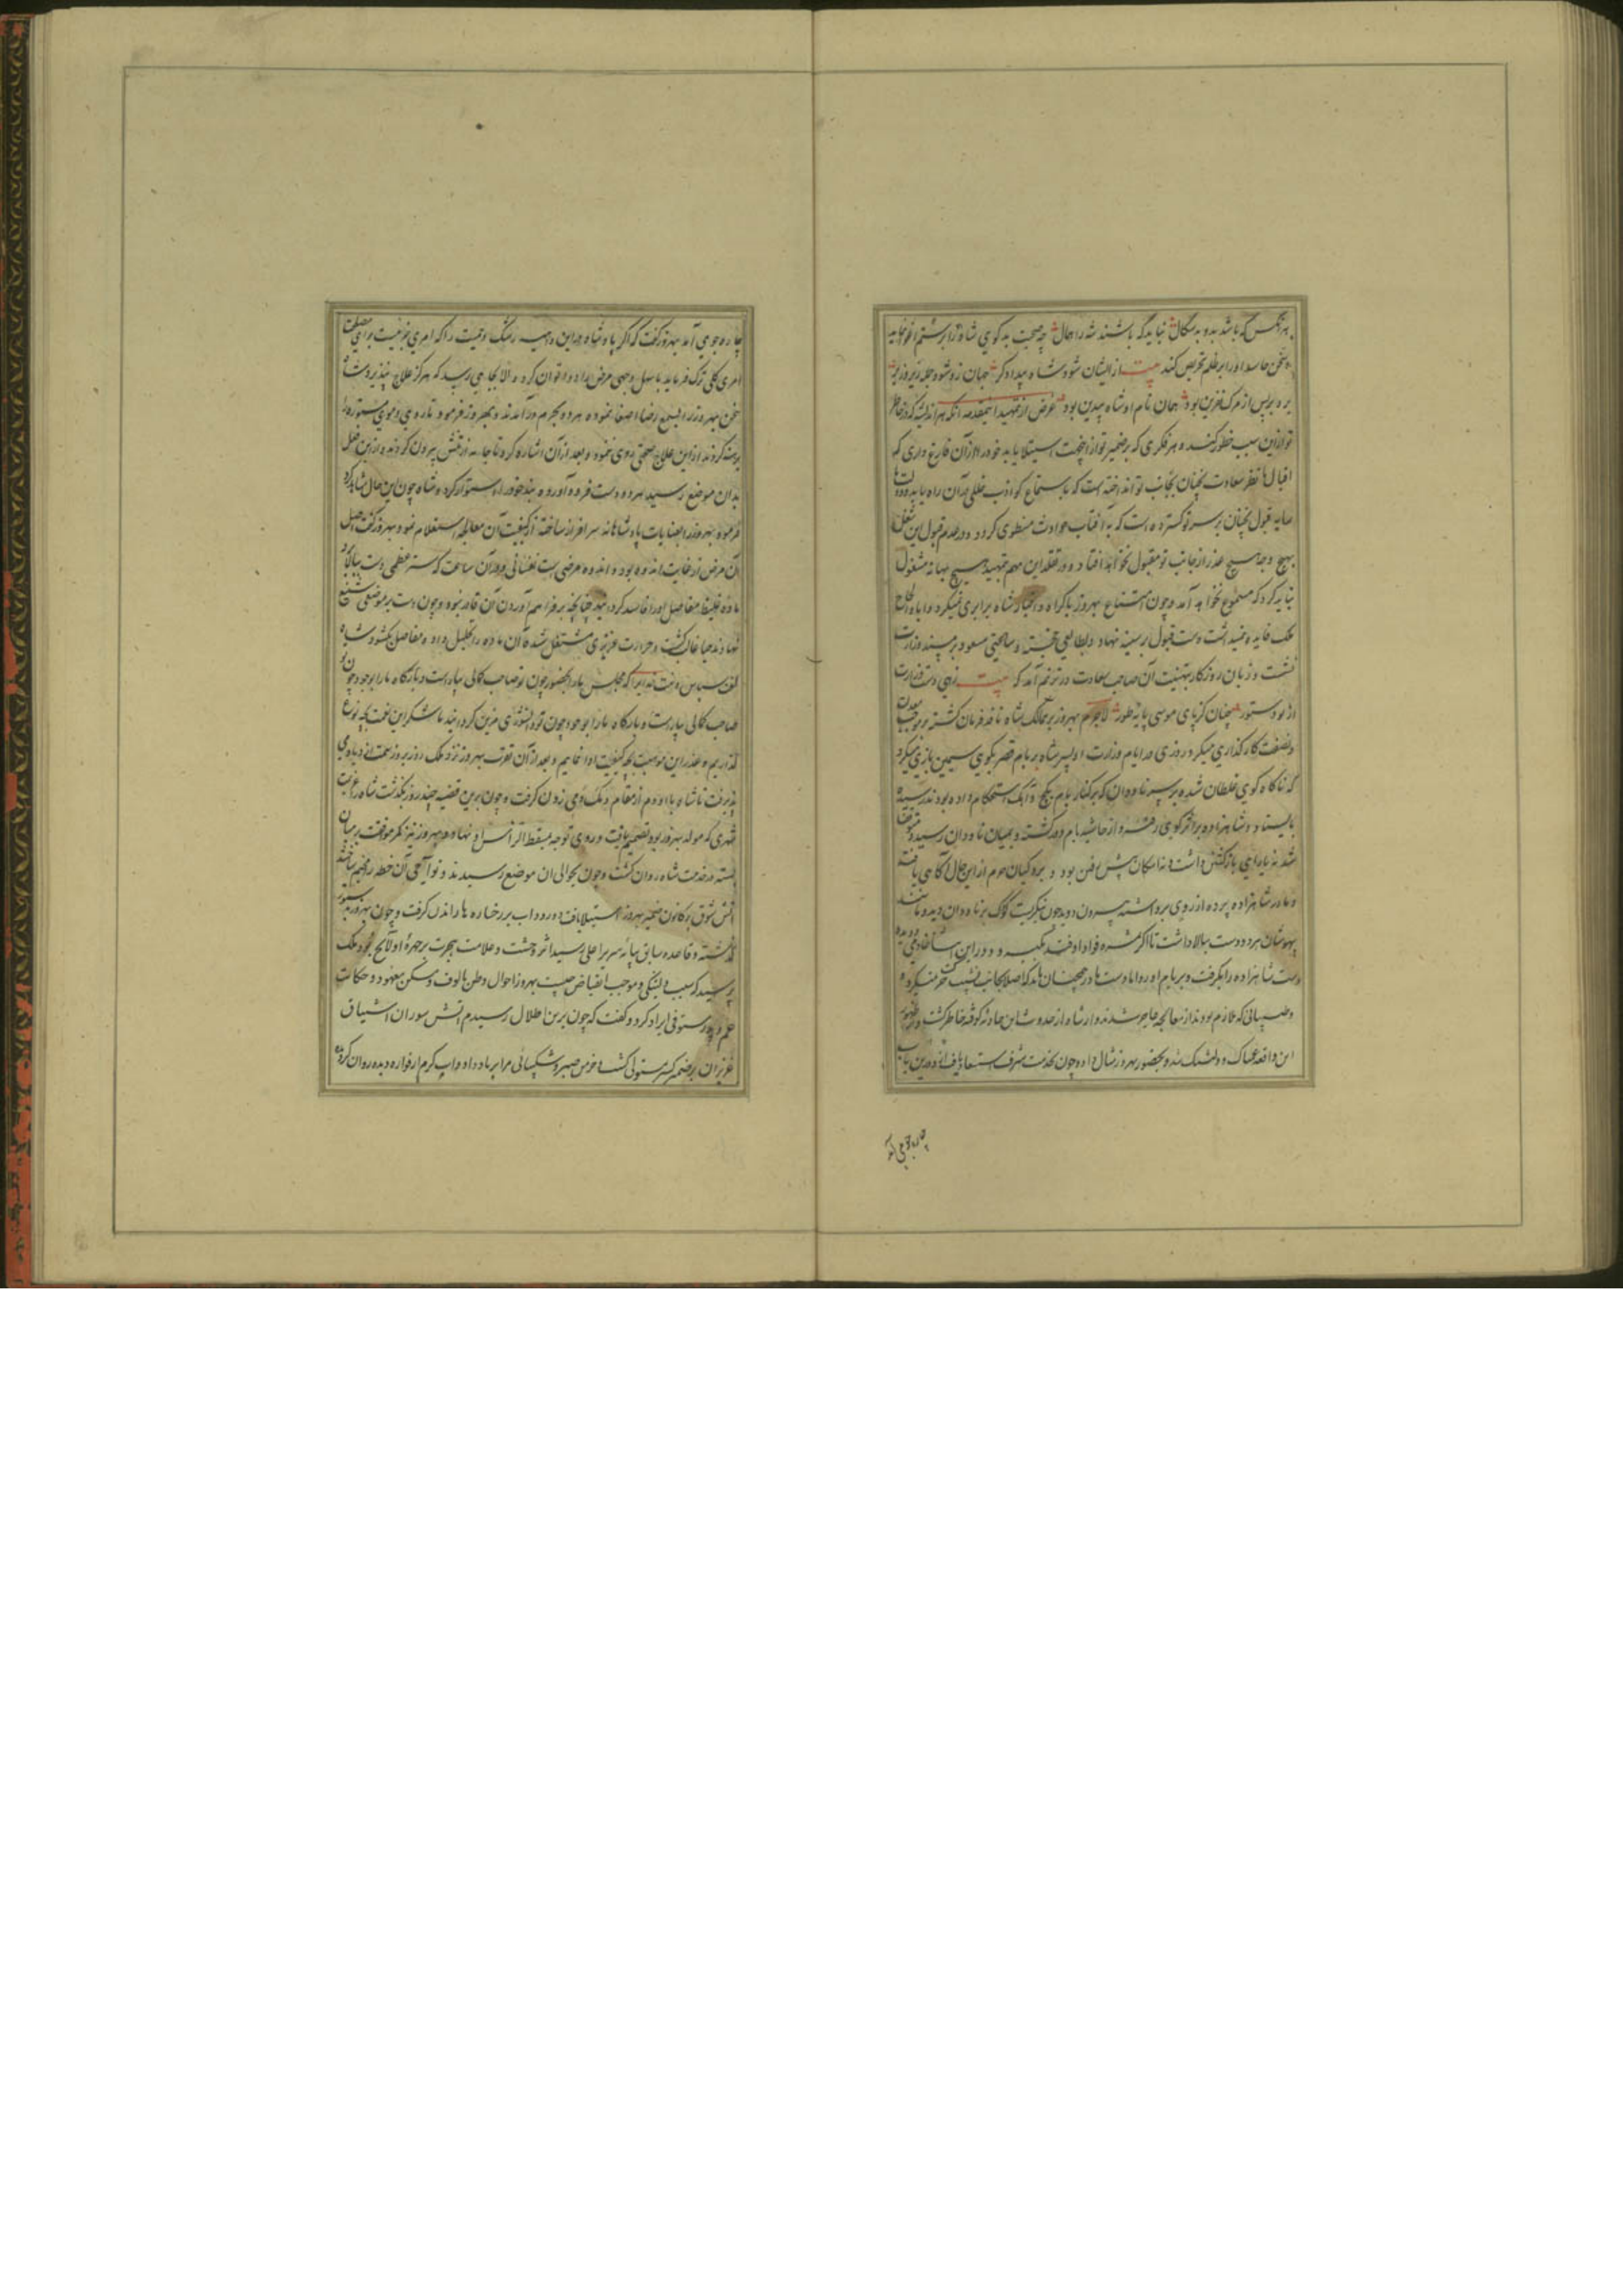 هر آنکس که باشد بد و بدسگال نباید که باشند شه را همال چه صحبت بدگوی شاه را بر ستم
سخن حاسد او را بر ظلم تحریص کند بیت از ایشان شود شاه بیدادگر جهان زو شود جمله زیر و زبر
بره بر پس از مرگ نفرین بود همان نام او شاه بیدین بود غرض از تمهید این مقدمه آنکه هر اندیشه که در خاطر
تو از این سبب خطور کند و هر فکری که بر ضمیر تو از این جهت استیلا یابد خود را از آن فارغ داری که
اقبال ما نظر سعادت نچنان بجانب تو انداخته است که باستماع کواذب خللی بدان راه یابد
سایه قبول نچنان بر سر تو گسترده است که به آفتاب حوادث منطوی گردد و در عدم قبول این شغل
بهیچ وجه هیچ عذر از جانب تو مقبول نخواهد افتاد و در تقلد این مهم بتمهید هیچ بهانه مشغول
نباید کرد که مسموع نخواهد آمد و چون امتناع بهروز با اکراه و اجبار شاه برابری نمیکرد و اباء با الحاح
ملک فایده نمیداشت دست قبول بر سینه نهاد و بطالعی خجسته و ساعتی مسعود بر مسند وزارت
نشست و زبان روزگار بتهنیت آن صاحب سعادت در ترنم آمد که بیت زهی دست وزارت
از تو دستور چنان کز پای موسی پایه طور لاجرم بهروز بر ممالک شاه نافذ فرمان گشته بر موجب
و نصفت کارگذاری میکرد روزی در ایام وزارت او پسر شاه بر بام قصر بگوی سیمین بازی میکرد
که ناگاه گوی غلطان شده بر سر ناودان که بر کنار بام بگچ و آهک استحکام داده بودند رسیده
بایستاد و شاهزاده بر اثر گوی رفته و از حاشیه بام در گذشته و بمیان ناودان رسید
شد نه یارای بازگشتن داشت و نه امکان پیش رفتن بود و پردگیان حرم از این حال آگاهی یافتند
و مادر شاهزاده پرده از روی برداشته بیرون دوید چون نگریست کودک بر ناودان دیده
بیهوشان هر دو دست بالا داشت تا اگر ثمره فؤاد او فتد بگیرد و در این اثنا خادمی
دست شاهزاده را بگرفت و بر بام آورد اما دستها همچنان ماند که اصلا بجانب نشیب حرکت نمیکرد
و طبیبانی که ملازم بودند از معالجه عاجز شدند و ارشاه از حدوث این حادثه کوفته خاطر گشت
این واقعه غمناک و دلتنگ شد و بحضور بهروز مثال داد و چون بخدمت شرف استسعاد یافت و در این باب
چاره جوی آمد
چاره جوی آمد بهروز گفت که اگر پادشاه در این داهیه رشک و حمیت را که امری جزئیست برای مصلحت
امری کلی ترک فرماید باسهل وجهی مرض را دوا توان کرد و الا بجایی رسد که هرگز علاج نپذیرد شاه
سخن بهروز را بسمع رضا اصغا نموده هر دو بحرم درآمدند و بهروز فرمود تا روی و موی مستوره
برهنه کردند از این علاج صحتی روی ننمود و بعد از آن اشاره کرد تا جامه از تنش بیرون کردند و از این فعل
بدان موضع رسید هر دو دست فرود آورده بند خود را استوار کرد و شاه چون این حال مشاهده
فرمود بهروز را بعنایات پادشاهانه سرافراز ساخته از کیفیت آن معالجه استعلام نمود بهروز گفت اصل
آن مرض از غایت اندوه بود و اندوه مرضی است نفسانی و در آن ساعت که ستر عظمی دست ببالا
ماده غلیظ مفاصل او را فاسد گردانید چنانچه بر فراهم آوردن آن قادر نبود و چون دست بر موضعی شنیع
نهادند حیا غالب گشت و حرارت غریزی مشتعل شد تا آن ماده را تحلیل داد و مفاصل بگشود شاه
گفت سپاس و منت خدایرا که مجلس ما را بحضور چون تو صاحب کمالی بیاراست و بارگاه ما را بوجود چون
صاحب کمالی بیاراست و بارگاه ما را بوجود چون تو دانشوری مزین گردانید ما شکر این نعمت بچه نوع
گذاریم و عذر این موهبت بچه کیفیت ادا نماییم و بعد از آن تقرب بهروز نزد ملک روز بروز سمت ازدیاد می
پذیرفت تا شاه با او دم از مقام و یکدمی زدن گرفت و چون برین قضیه چند روز بگذشت شاه را عزیمت
شهری که مولد بهروز بود تصمیم یافت و روی توجه بمسقط الرأس او نهاد و بهروز نیز کمر موافقت بر میان
بسته در خدمت شاه روان گشت و چون بحوالی آن موضع رسیدند و نواحی آن خطه را مخیم ساختند
آتش شوق در کانون ضمیر بهروز استیلا یافت و رود آب بر رخساره ها راندن گرفت و چون بهروز بدستور
گذشته و قاعده سابق بپایه سریر اعلی رسید اثر وحشت و علامت هجرت بر چهره او لایح بود ملک
پرسید که سبب دلتنگی و موجب انقباض چیست بهروز احوال وطن مألوف و مسکن معهود و حکایت
مستوفی ایراد کرد و گفت که چون برین اطلال رسیدم آتش سوزان اشتیاق
عزیزان بر ضمیر مستولی گشت و خرمن صبر و شکیبائی مرا بر باد داد و آب گرم از فواره دیده روان کرد